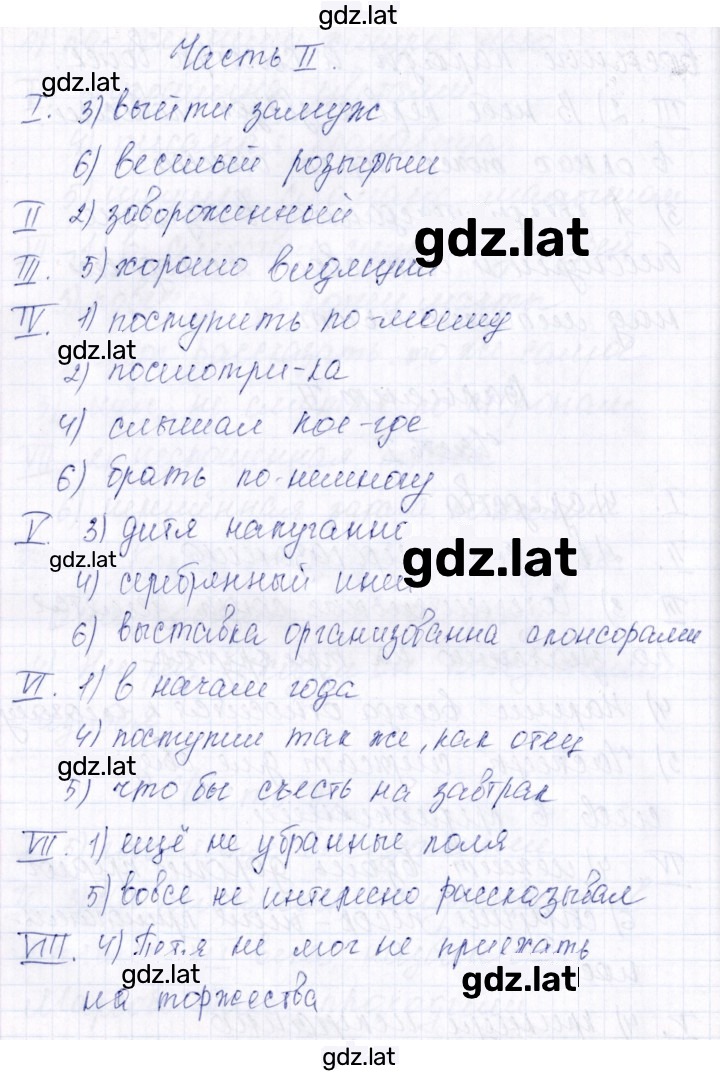 gdz.lat
Часть II.
gdz.lat
I. 3) выйти замуж
6) веселый розыгрыш
II 2) завороженный
gdz.lat
III. 5) хорошо видящий
IV. 1) поступить по-моему
gdz.lat
2) посмотри-ка
4) слышал кое-где
6) брать по-немногу
V. 3) дитя напугано
gdz.lat
gdz.lat
4) серебрянный иней
6) выставка организованна спонсорами
VI. 1) в начале года
4) поступил так же, как отец
gdz.lat
5) что бы съесть на завтрак
VII. 1) ещё не убранные поля
5) вовсе не интересно рассказывал
VIII. 4) Петя не мог не приехать
gdz.lat
gdz.lat
на торжества
gdz.lat